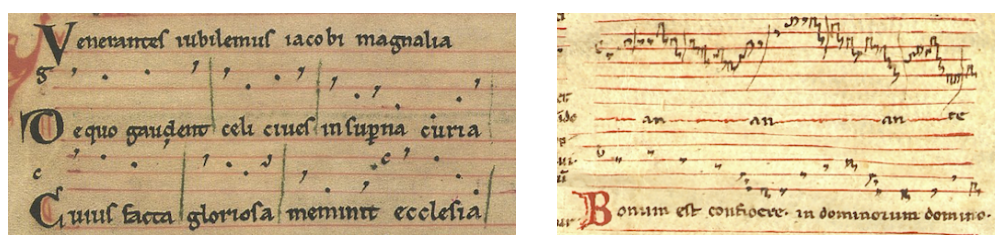 Venerantes iubilemus iacobi magnalia
g
De quo gaudent celi ciues in sup̱na curia
c
Cuius facta gloriosa meminit ecclesia
an an an te
Bonum est confiδere· in dominorum domino·